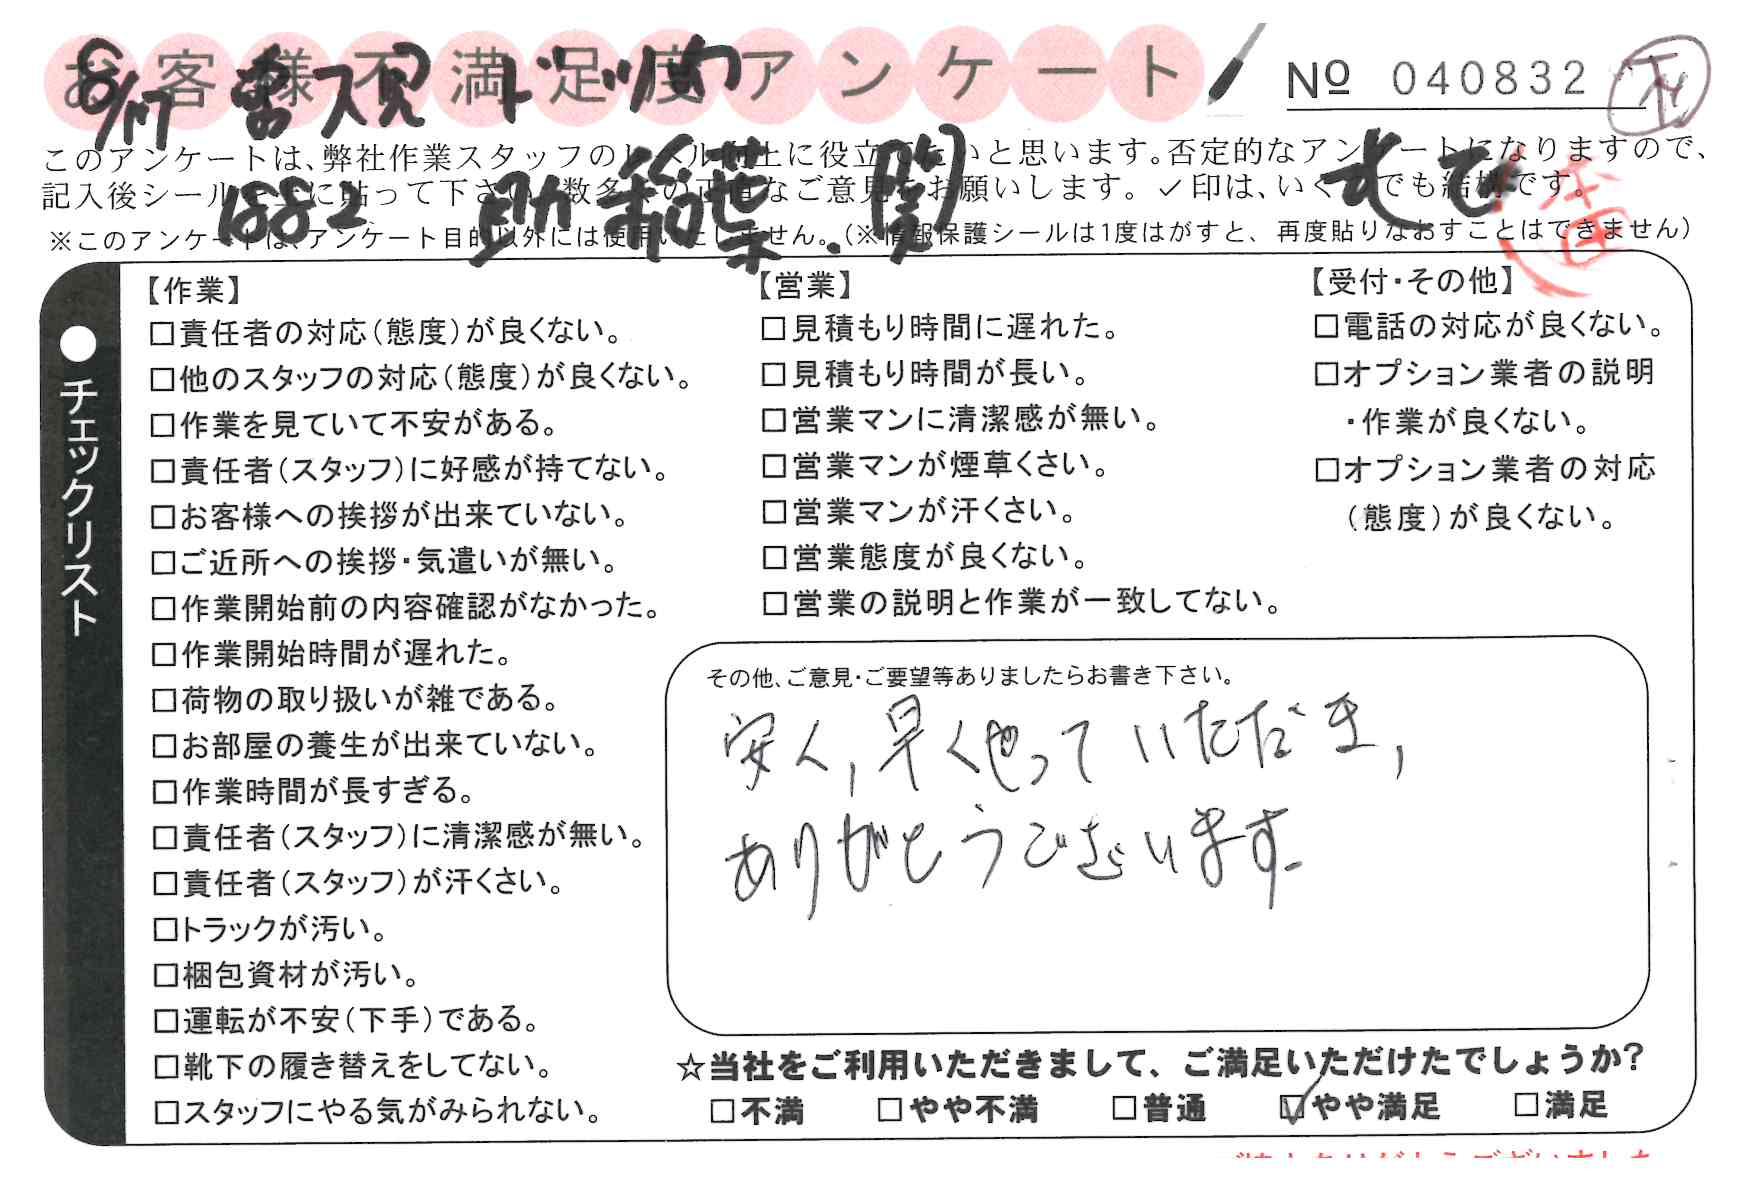 お客様不満足度アンケート
№ 040832
8/17
このアンケートは、弊社作業スタッフのレベル向上に役立てたいと思います。否定的なアンケートになりますので、
記入後シールを上に貼って下さい。数多くの正直なご意見をお願いします。✓印は、いくつでも結構です。
1882 助 稲葉.関
※このアンケートは、アンケート目的以外には使用いたしません。(※情報保護シールは1度はがすと、再度貼りなおすことはできません)
●チェックリスト
【作業】
□責任者の対応(態度)が良くない。
□他のスタッフの対応(態度)が良くない。
□作業を見ていて不安がある。
□責任者(スタッフ)に好感が持てない。
□お客様への挨拶が出来ていない。
□ご近所への挨拶・気遣いが無い。
□作業開始前の内容確認がなかった。
□作業開始時間が遅れた。
□荷物の取り扱いが雑である。
□お部屋の養生が出来ていない。
□作業時間が長すぎる。
□責任者(スタッフ)に清潔感が無い。
□責任者(スタッフ)が汗くさい。
□トラックが汚い。
□梱包資材が汚い。
□運転が不安(下手)である。
□靴下の履き替えをしてない。
□スタッフにやる気がみられない。
【営業】
□見積もり時間に遅れた。
□見積もり時間が長い。
□営業マンに清潔感が無い。
□営業マンが煙草くさい。
□営業マンが汗くさい。
□営業態度が良くない。
□営業の説明と作業が一致してない。
【受付・その他】
□電話の対応が良くない。
□オプション業者の説明
・作業が良くない。
□オプション業者の対応
(態度)が良くない。
その他、ご意見・ご要望等ありましたらお書き下さい。
安く,早くやって いただき,
ありがとうございます.
☆当社をご利用いただきまして、ご満足いただけたでしょうか?
□不満 □やや不満 □普通 ☑やや満足 □満足